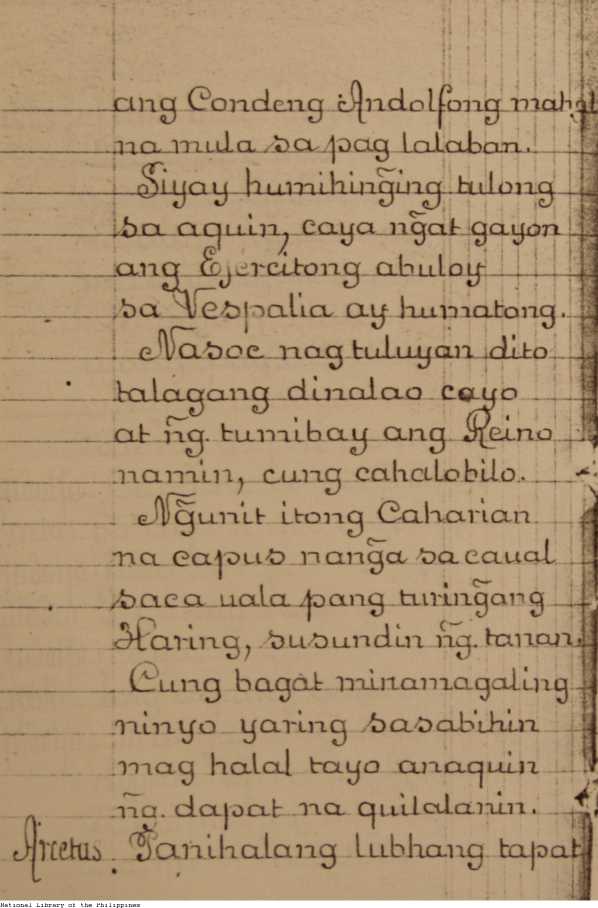 ang Condeng Andolfong mahal
na mula sa pag lalaban.
Siyay humihing̃ing tulong
sa aquin, caya ng̃at gayon
ang Ejercitong abuloy
sa Vespalia ay humatong.
Nasoc nag tuluyan dito
talagang dinalao cayo
at ng̃. tumibay ang Reino
namin, cung cahalobilo.
Ng̃unit itong Caharian
na capus nang̃a sa caual
saca uala pang turing̃ang
Haring, susundin ng̃. tanan.
Cung bagat minamagaling
ninyo yaring sasabihin
mag halal tayo anaquin
ng̃. dapat na quilalanin.
Arcetus. Panihalang lubhang tapat
National Library of the Philippines